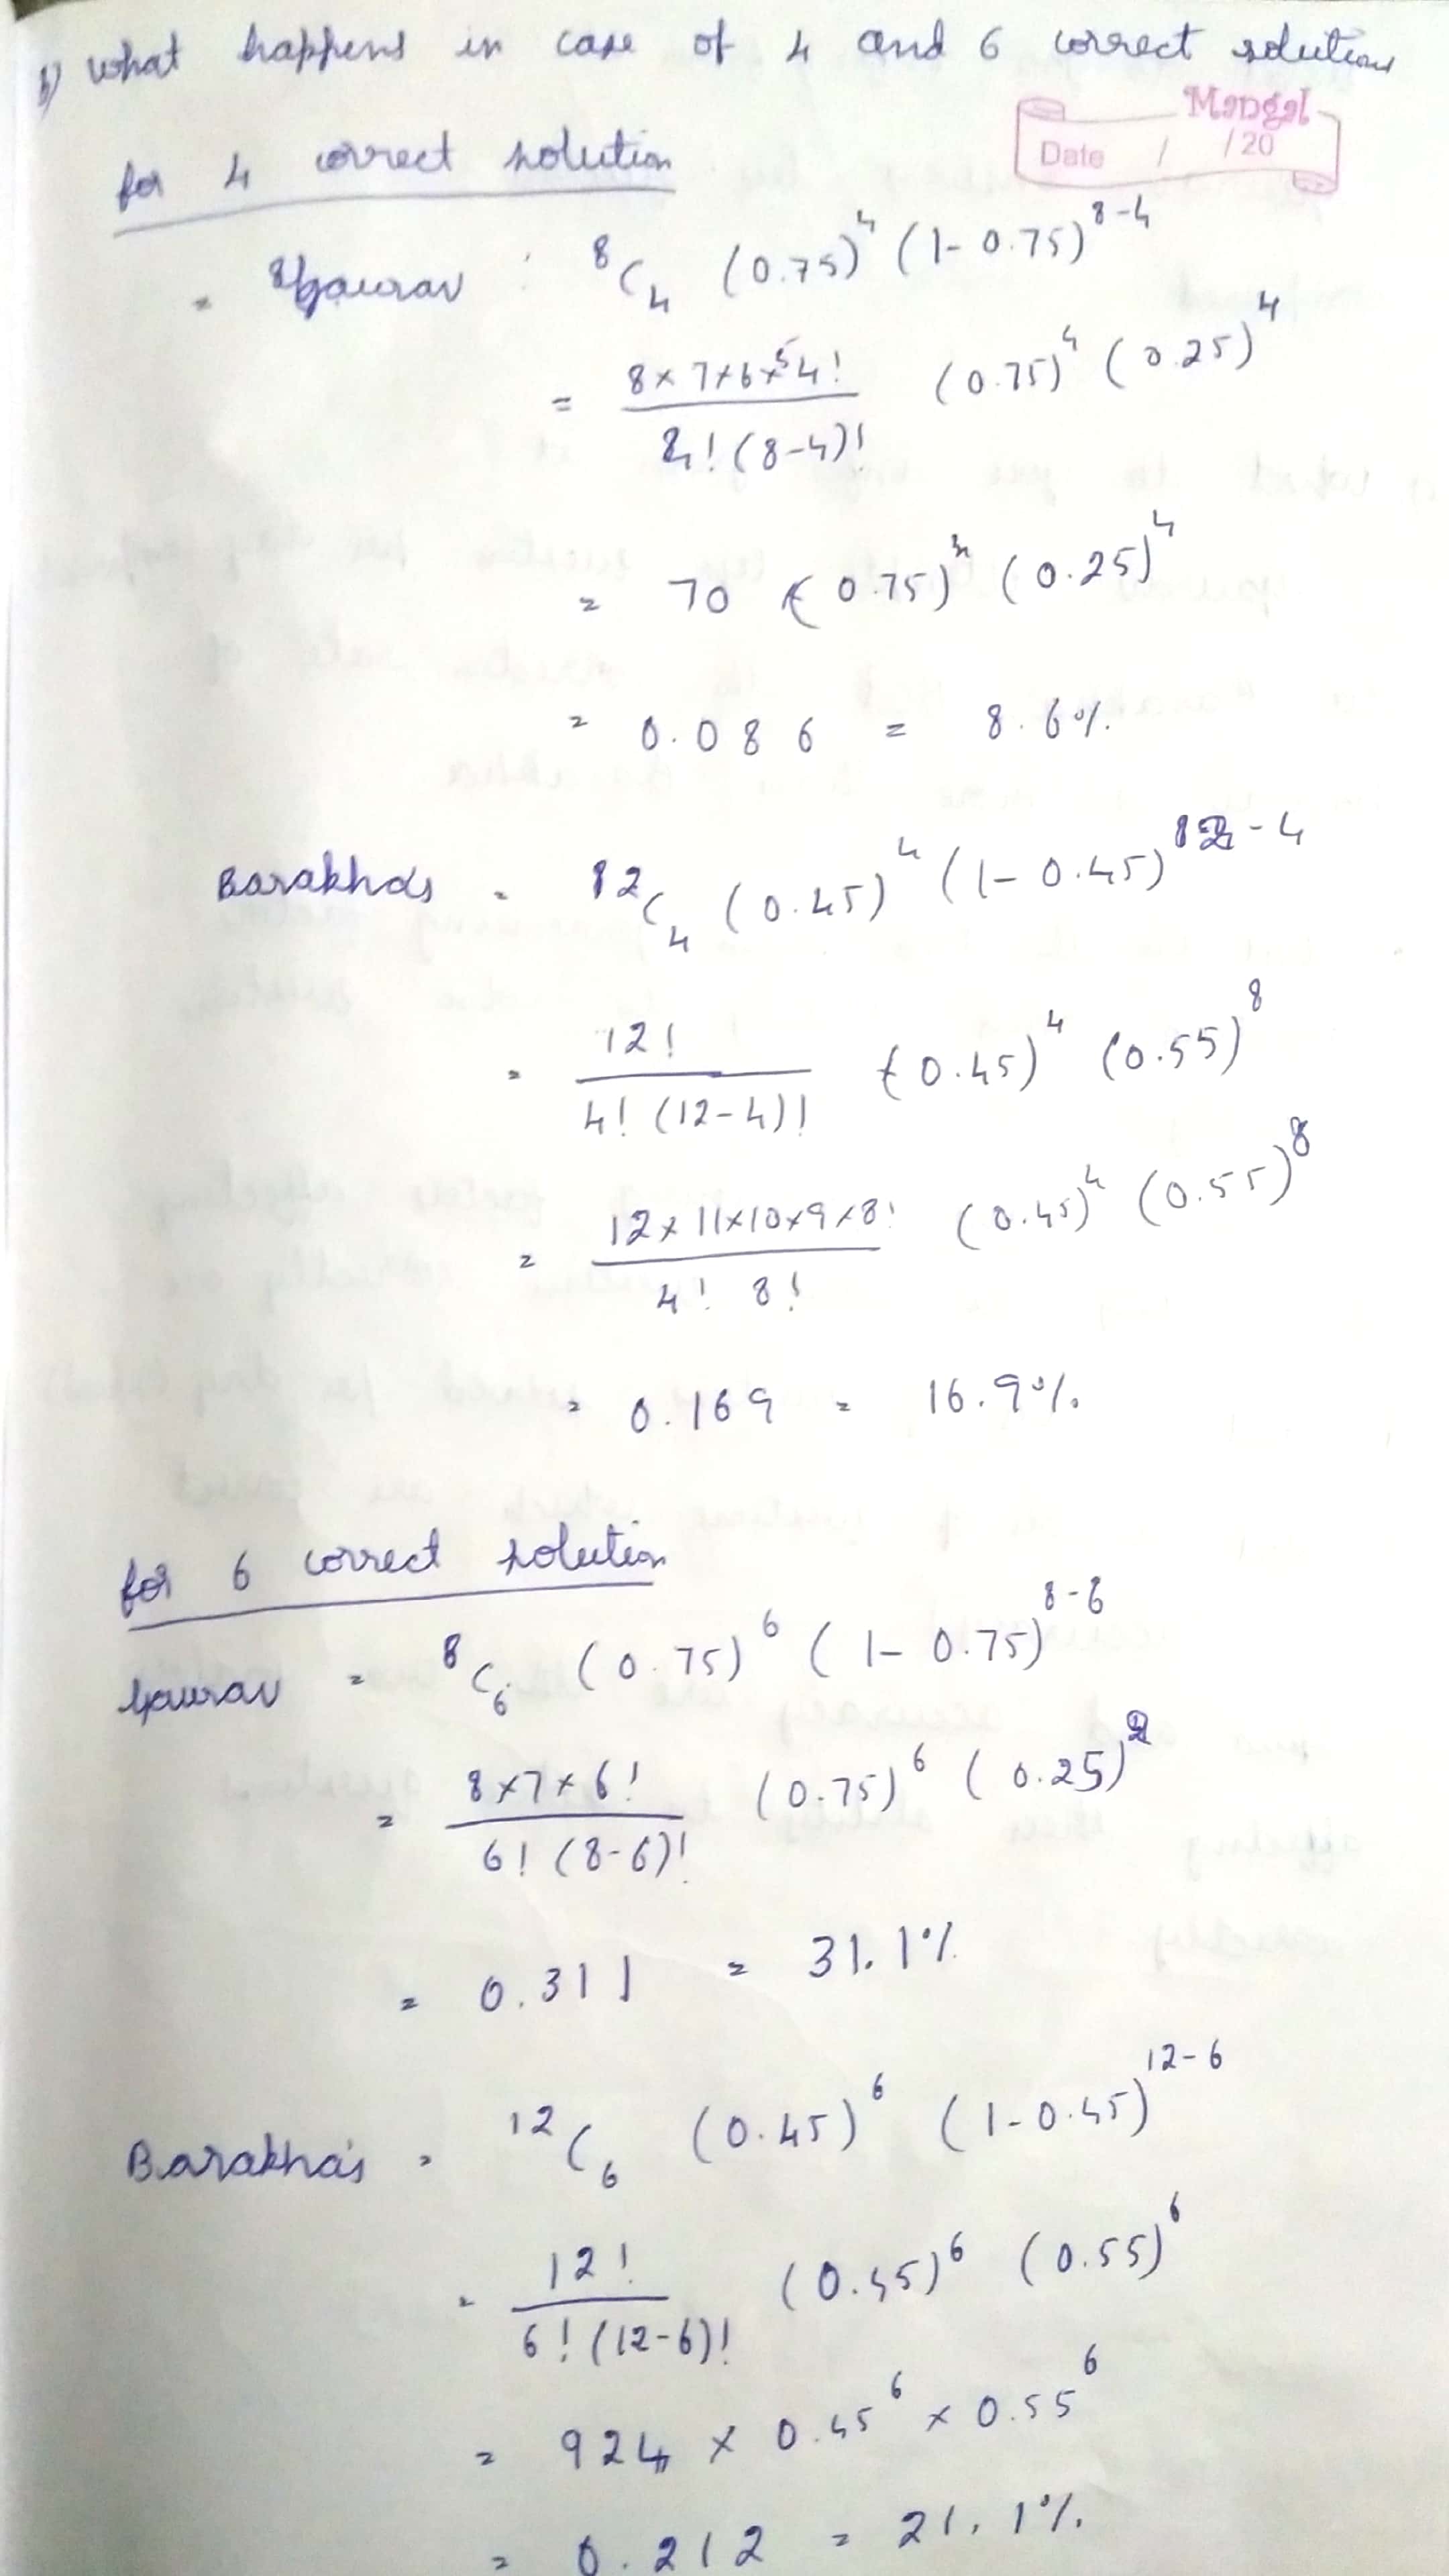 b) what happens in case of 4 and 6 correct solutions
Mangal
Date / /20
for 4 correct solution
= Gaurav : ⁸C₄ (0.75)⁴ (1-0.75)⁸⁻⁴
= 8×7×6×5 4! / 4!(8-4)! (0.75)⁴ (0.25)⁴
= 70 (0.75)⁴ (0.25)⁴
= 0.086 = 8.6%
Barakha's = ¹²C₄ (0.45)⁴ (1-0.45)¹²⁻⁴
= 12! / 4! (12-4)! (0.45)⁴ (0.55)⁸
= 12×11×10×9×8! / 4! 8! (0.45)⁴ (0.55)⁸
= 0.169 = 16.9%
for 6 correct solution
Gaurav = ⁸C₆ (0.75)⁶ (1-0.75)⁸⁻⁶
= 8×7×6! / 6! (8-6)! (0.75)⁶ (0.25)²
= 0.311 = 31.1%
Barakha's = ¹²C₆ (0.45)⁶ (1-0.45)¹²⁻⁶
= 12! / 6! (12-6)! (0.45)⁶ (0.55)⁶
= 924 × 0.45⁶ × 0.55⁶
= 0.212 = 21.1%